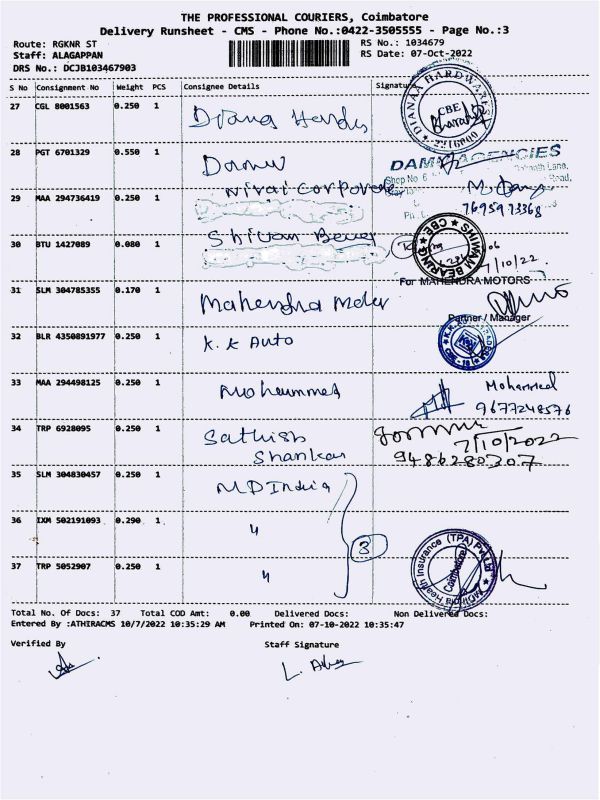 THE PROFESSIONAL COURIERS, Coimbatore
Delivery Runsheet - CMS - Phone No.:0422-3505555 - Page No.:3
Route: RGKNR ST
RS No.: 1034679
Staff: ALAGAPPAN
RS Date: 07-Oct-2022
DRS No.: DCJB103467903
S No Consignment No Weight PCS Consignee Details Signatu
27 CGL 8001563 0.250 1
DIANAA HARDWARES
CBE
Bharathi
2216000
28 PGT 6701329 0.550 1
DAMU AGENCIES
Shop No 6
Lane,
Road,
29 MAA 294736419 0.250 1 Nirai Corpora
7695973368
30 BTU 1427089 0.080 1 Shivam
SHIWANI BEARING CBE
7/10/22
For MAHENDRA MOTORS
31 SLM 304785355 0.170 1 Mahendra Motor
Partner / Manager
32 BLR 4350891977 0.250 1 K.K Auto
33 MAA 294498125 0.250 1 Mohammed
Mohammed
9677248576
34 TRP 6928095 0.250 1 Sathish
Shankar
7/10/2022
9486280307
35 SLM 304830457 0.250 1 MDIndia
36 IXM 502191093 0.290 1 "
3
37 TRP 5052907 0.250 1 "
MDIndia Health Insurance (TPA) Pvt Ltd
Coimbatore
Total No. Of Docs: 37 Total COD Amt: 0.00 Delivered Docs: Non Delivered Docs:
Entered By :ATHIRACMS 10/7/2022 10:35:29 AM Printed On: 07-10-2022 10:35:47
Verified By Staff Signature